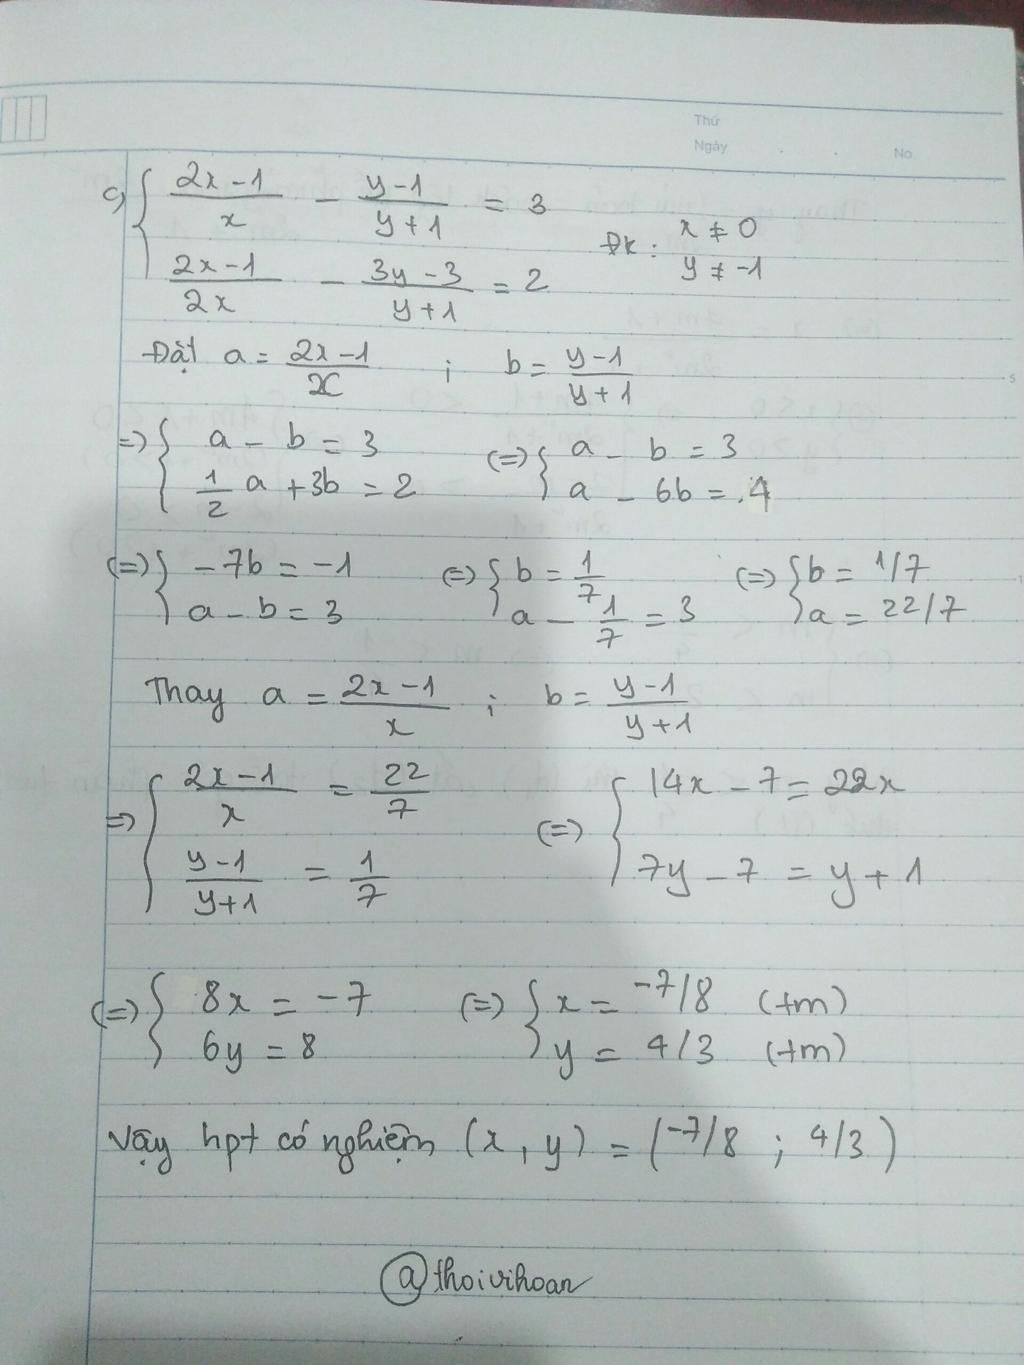 Thứ
Ngày . . No
c) { (2x-1)/x - (y-1)/(y+1) = 3
(2x-1)/2x - (3y-3)/(y+1) = 2
Đk : x ≠ 0
y ≠ -1
Đặt a = (2x-1)/x ; b = (y-1)/(y+1)
=> { a - b = 3 (=) { a - b = 3
1/2 a + 3b = 2 a - 6b = .4
(=) { -7b = -1 (=) { b = 1/7 (=) { b = 1/7
a - b = 3 a - 1/7 = 3 a = 22/7
Thay a = (2x-1)/x ; b = (y-1)/(y+1)
=> { (2x-1)/x = 22/7 (=) { 14x - 7 = 22x
(y-1)/(y+1) = 1/7 7y - 7 = y + 1
(=) { 8x = -7 (=) { x = -7/8 (tm)
6y = 8 y = 4/3 (tm)
Vậy hpt có nghiệm (x, y) = (-7/8 ; 4/3)
@thoivihoan